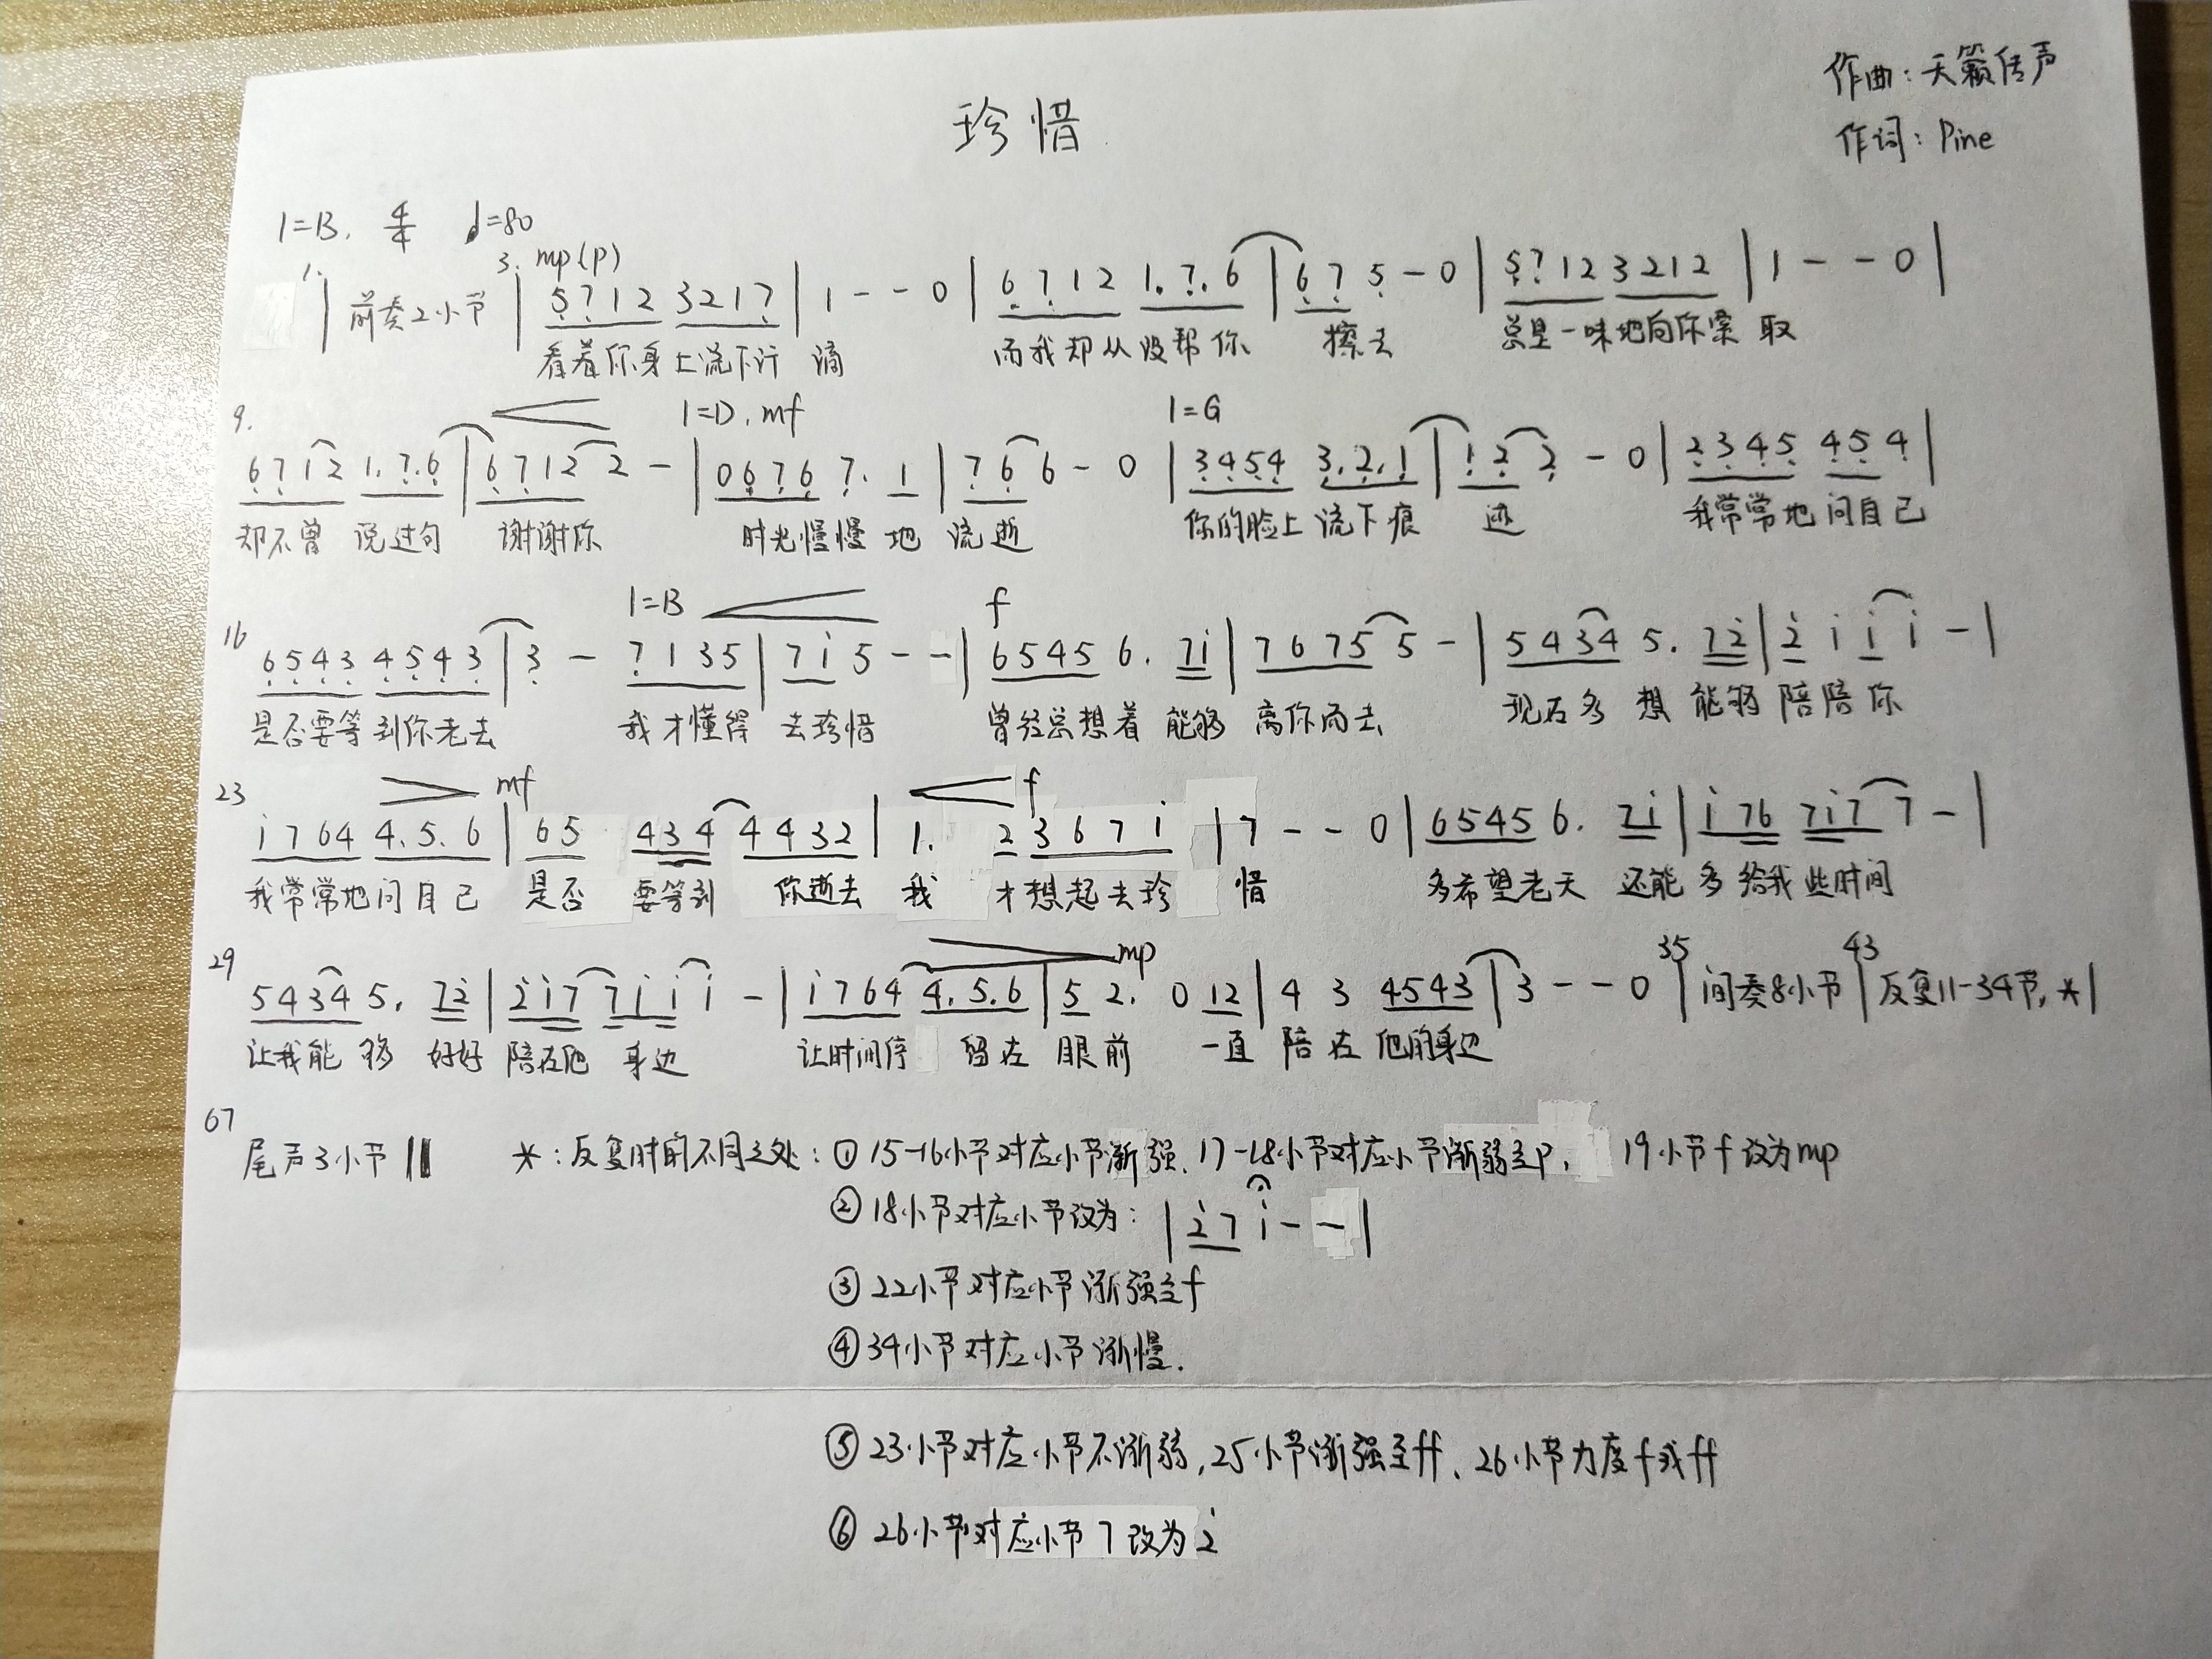 作曲：天籁传声
珍惜
作词：Pine
1=B. 4/4 ♩=80
1. 3. mp(p)
| 前奏2小节 | 5̣7̣12 3217̣ | 1 - - 0 | 6̣7̣12 1.7̣.6̣ | 6̣7̣ 5̣ - 0 | 5̣7̣12 3212 | 1 - - 0 |
看着你身上流下汗 滴 而我却从没帮你 擦去 总是一味地向你索 取
9. 1=D. mf 1=G
6̣7̣12 1.7̣.6̣ | 6̣7̣12 2 - | 06̣7̣6̣ 7̣. 1 | 7̣6̣ 6 - 0 | 3̣4̣5̣4̣ 3̣.2̣.1̣ | 1̣2̣ 2̣ - 0 | 2̣3̣4̣5̣ 4̣5̣4̣ |
却不曾 说过句 谢谢你 时光慢慢 地 流逝 你的脸上 流下痕 迹 我常常地 问自己
16 1=B f
6̣5̣4̣3̣ 4̣5̣4̣3̣ | 3̣ - 7̣135 | 7i̇ 5 - - | 6545 6. 7i̇ | 7675 5 - | 5434 5. 72̇ | 2̇ i̇ i̇ i̇ - |
是否要等 到你老去 我才懂得 去珍惜 曾经总想着 能够 离你而去 现在多 想 能够 陪陪 你
23 mf f
i̇764 4.5.6 | 65 434 4432 | 1. 23671̇ | 7 - - 0 | 6545 6. 7i̇ | i̇76 7i̇7 7 - |
我常常地 问自己 是否 要等到 你逝去 我 才想起去珍 惜 多希望老天 还能 多 给我 些时间
29 mp 35 43
5434 5. 72̇ | 2̇i̇7 7i̇i̇ i̇ - | i̇764 4.5.6 | 5 2. 0 12 | 4 3 4543 | 3 - - 0 | 间奏8小节 | 反复11-34节, * |
让我能 够 好好 陪在他 身边 让时间停 留在 眼前 一直 陪在 他的身边
67
尾声3小节 ‖ *：反复时的不同之处：① 15-16小节对应小节渐强、17-18小节对应小节渐弱至p, 19小节f改为mp
② 18小节对应小节改为：| 2̇7 i̇ - - |
③ 22小节对应小节渐强至f
④ 34小节对应小节渐慢.
⑤ 23小节对应小节不渐弱, 25小节渐强至ff、26小节力度f或ff
⑥ 26小节对应小节7改为2̇